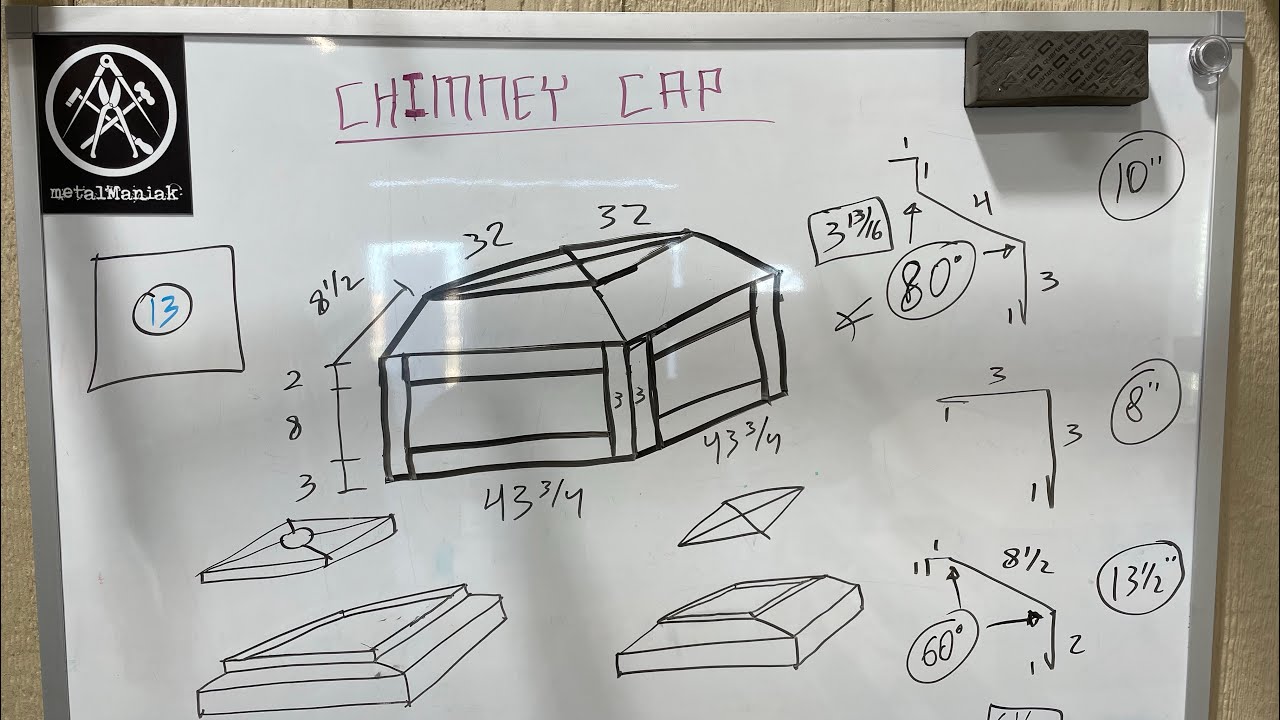 metalManiak
CHIMNEY CAP
13
32
32
8 1/2
2
8
3
3
3
43 3/4
43 3/4
10"
1
1
4
3 13/16
80°
3
1
8"
3
1
3
1
13 1/2"
1
1
8 1/2
60°
2
1